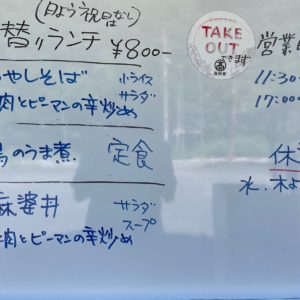 (日よう祝日はなし)
替りランチ ¥800-
やしそば 小ライス
サラダ
肉とピーマンの辛炒め
のうま煮 定食
麻婆丼 サラダ
スープ
牛肉とピーマンの辛炒め
TAKE
OUT
できます
営業
11:30
17:00
休
水.木よ